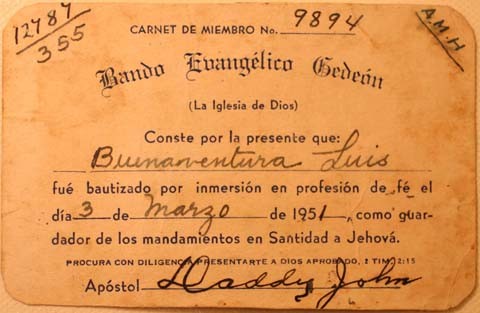 12787
355
A.M.H
CARNET DE MIEMBRO No. 9894
Bando Evangélico Gedeón
(La Iglesia de Dios)
Conste por la presente que:
Buenaventura Luis
fué bautizado por inmersión en profesión de fé el
día 3 de Marzo de 1951, como guar-
dador de los mandamientos en Santidad a Jehová.
PROCURA CON DILIGENCIA PRESENTARTE A DIOS APROBADO, 2 TIM. 2:15
Apóstol Daddy John